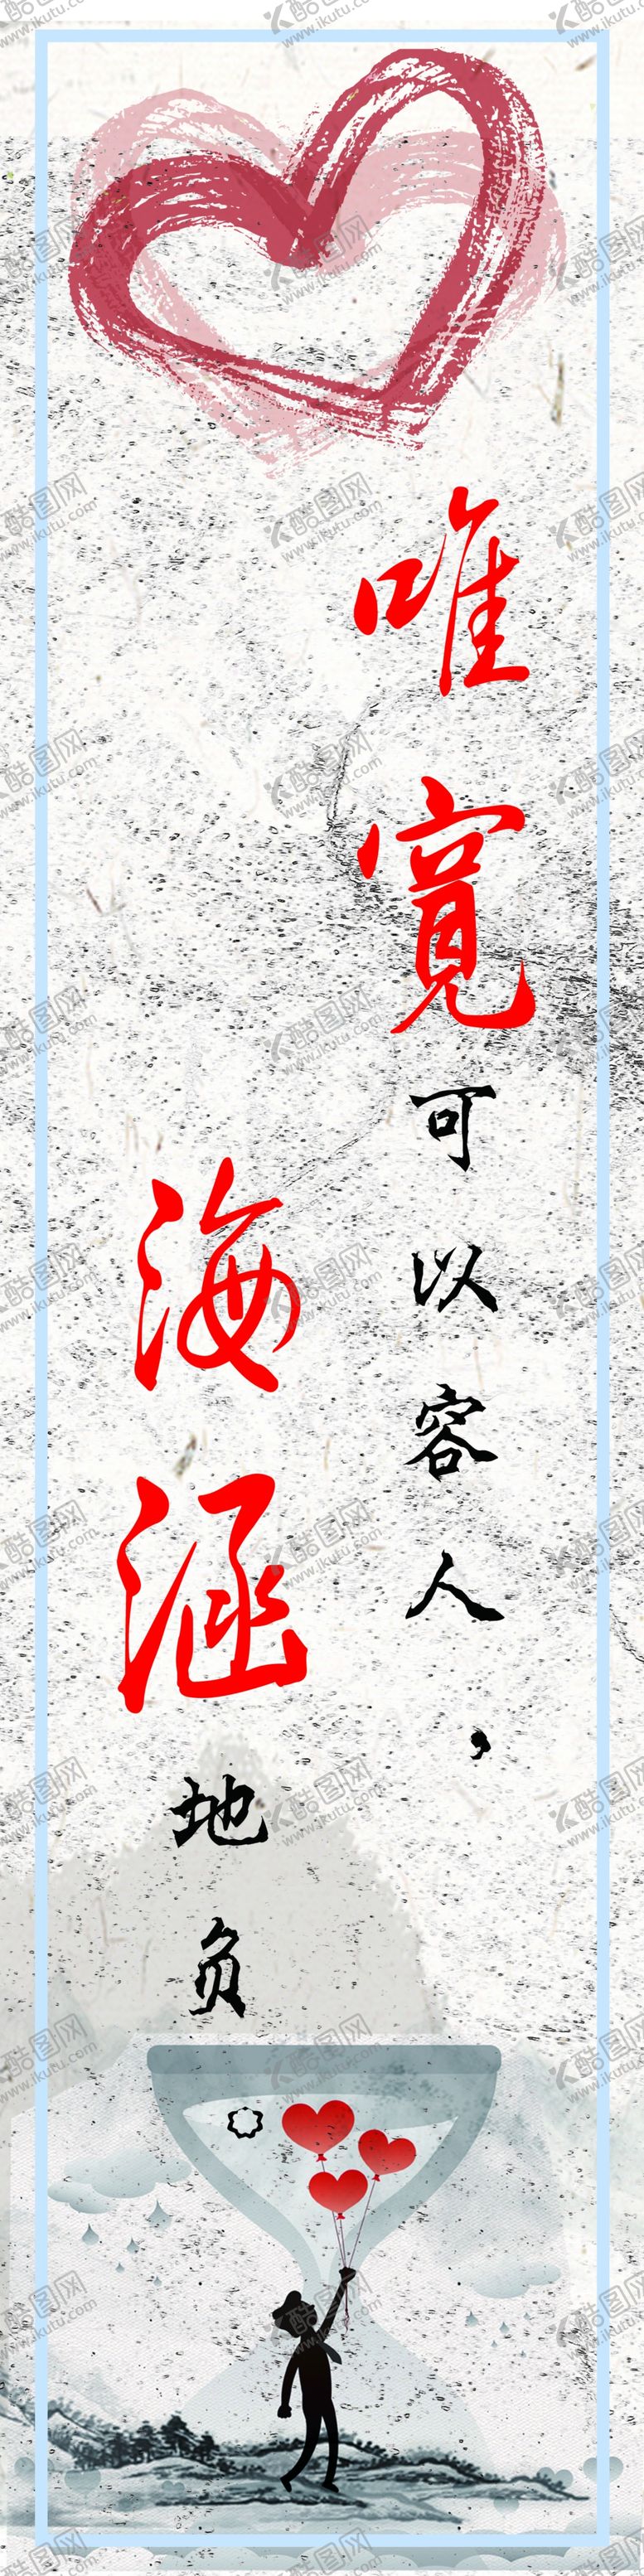 唯寬可以容人，
海涵地负
酷图网
www.ikutu.com